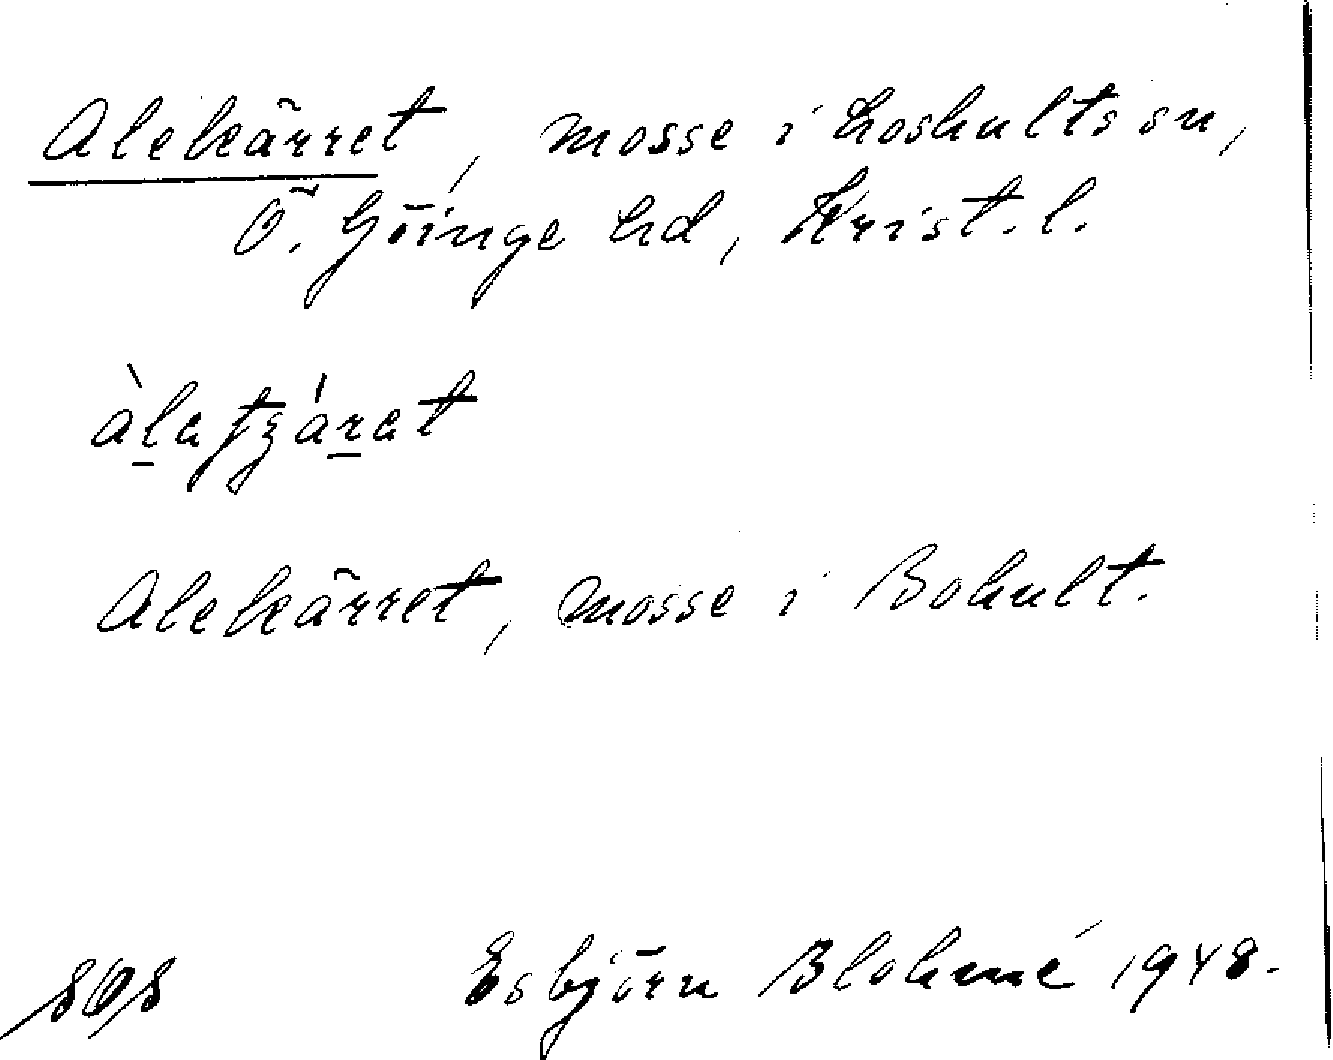 Alekärret, mosse i Loshults sn,
Ö. Göinge hd, Krist. l.
àlatʒárat
Alekärret, mosse i Bohult.
Esbjörn Blohmé 1948.